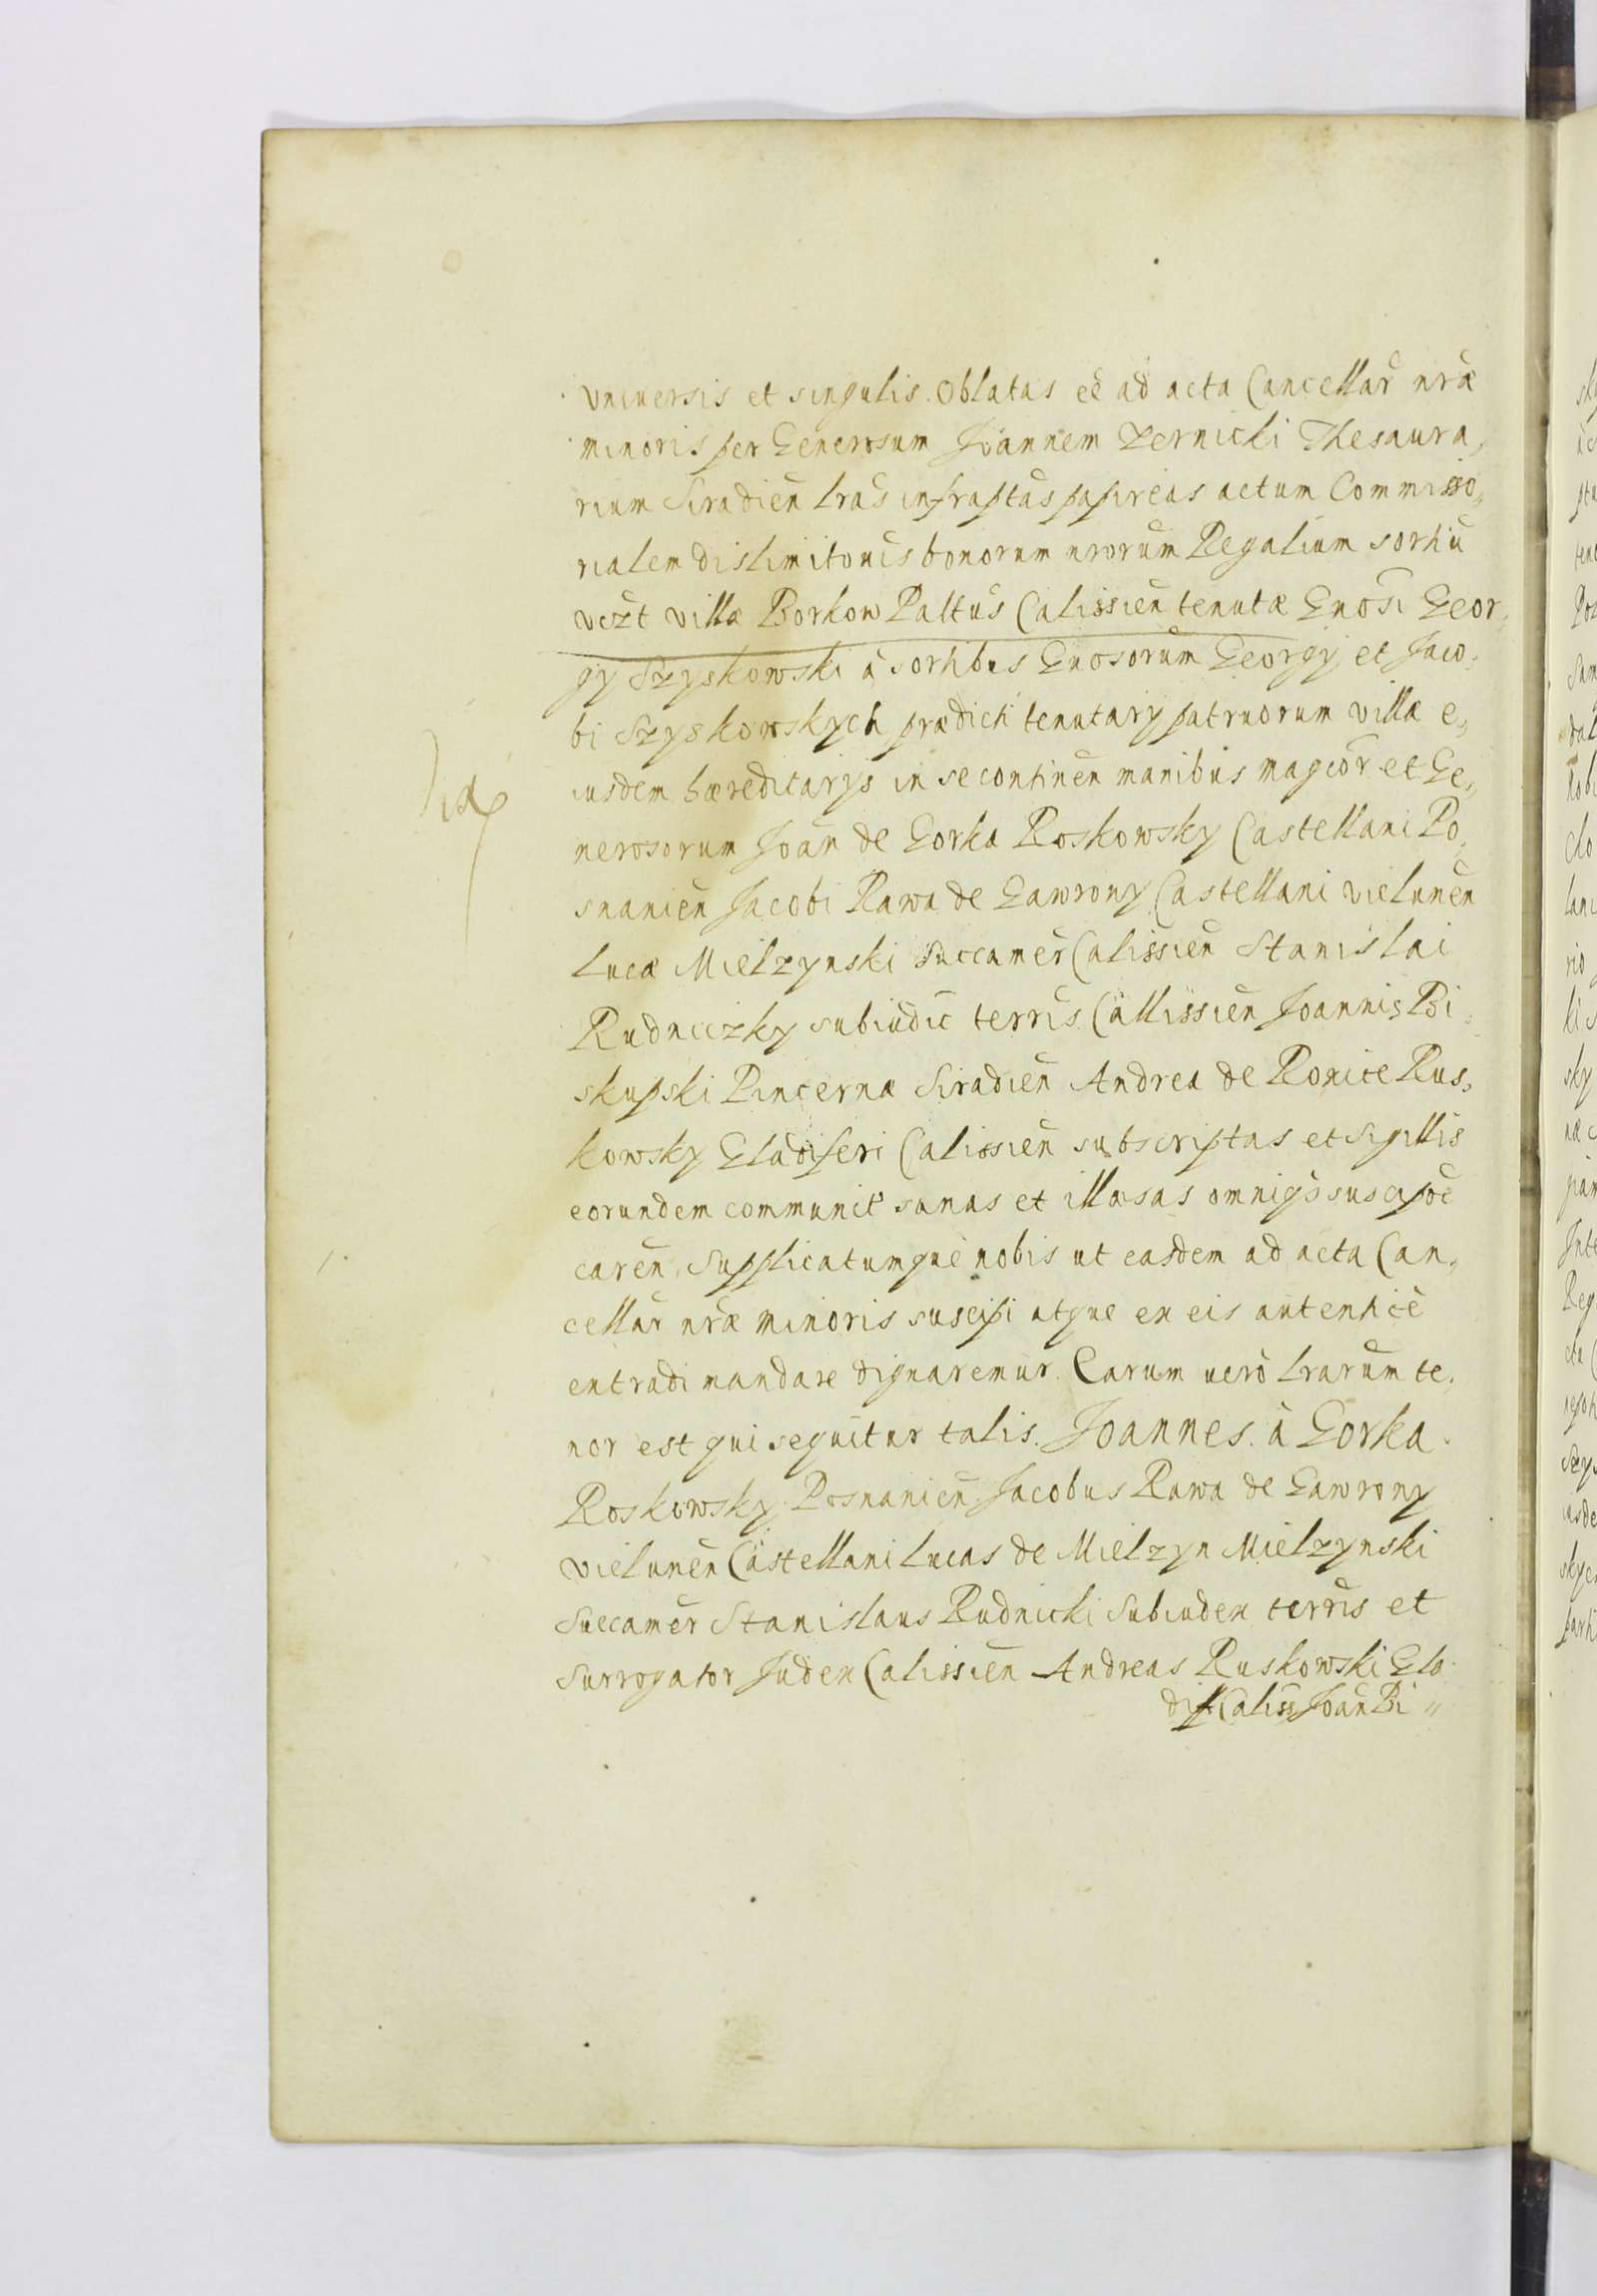 universis et singulis. Oblatas eē ad acta Cancellar̄ nr̄æ
minoris per Generosum Joannem Zernicki Thesaura,
rium Siradień lr̄as infraptas papireas actum Commisso,
rialem dislimitonis bonorum nr̄orum Regalium sortiū
vczt villæ Borkow Paltus Calissień tenutæ Gnosi Geor,
gy Szyskowski à sortibus Gnosorum Georgy et Jaco,
bi Szyskowskych prædicti tenutary patruorum villæ e,,
iusdem hæreditarys in se continen̄ manibus magcor̄ et Ge,,
nerosorum Joan̄ de Gorka Roskowsky Castellani Po,
snanień Jacobi Rawa de Gawrony Castellani vielunēn
Lucæ Mielzynski Succamer̄ Calissień Stanislai
Rudniczky subiudic̄ terris Callissień Joannis Bi,
skupski Pincernæ Siradień Andrea de Romice Rus,
kowsky Gladiferi Calissień subscriptas et sigillis
eorundem communit̄ sanas et illæsas omniq̄ suscipōe
caren̄. Supplicatumque nobis ut easdem ad acta Can,
cellar̄ nr̄æ minoris suscipi atque ex eis autenticè
extradi mandare dignaremur. Earum verò lr̄arum te,
nor est qui sequitur talis. Joannes à Gorka
Roskowsky Posnanień Jacobus Rawa de Gawrony
vielunēn Castellani Lucas de Mielzyn Mielzynski
Succamer̄ Stanislaus Rudnicki Subiudex terris et
Surrogator Judex Calissień Andreas Ruskowski Gla
dif Caliss Joan̄ Bi,,